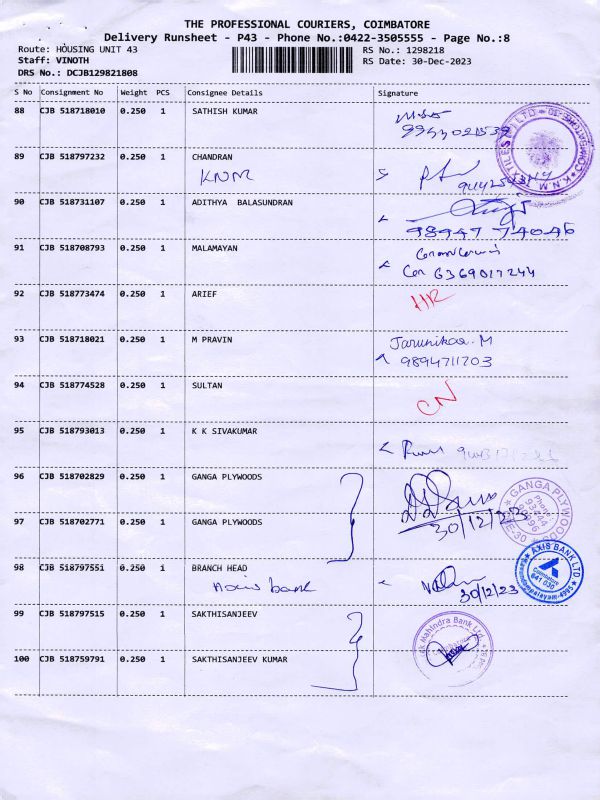 THE PROFESSIONAL COURIERS, COIMBATORE
Delivery Runsheet - P43 - Phone No.:0422-3505555 - Page No.:8
Route: HOUSING UNIT 43 RS No.: 1298218
Staff: VINOTH RS Date: 30-Dec-2023
DRS No.: DCJB129821808
S No Consignment No Weight PCS Consignee Details Signature
88 CJB 518718010 0.250 1 SATHISH KUMAR
K.N.M. TEXTILES LTD
89 CJB 518797232 0.250 1 CHANDRAN
KNM
90 CJB 518731107 0.250 1 ADITHYA BALASUNDRAN
98947 74046
91 CJB 518708793 0.250 1 MALAMAYAN
6369017244
92 CJB 518773474 0.250 1 ARIEF
93 CJB 518718021 0.250 1 M PRAVIN Jarunikaa. M
9894711703
94 CJB 518774528 0.250 1 SULTAN CN
95 CJB 518793013 0.250 1 K K SIVAKUMAR
96 CJB 518702829 0.250 1 GANGA PLYWOODS
GANGA PLYWOODS
Phone:
97 CJB 518702771 0.250 1 GANGA PLYWOODS 30/12/23
98 CJB 518797551 0.250 1 BRANCH HEAD
Axis bank 30/12/23
AXIS BANK LTD
Coimbatore
641 030
99 CJB 518797515 0.250 1 SAKTHISANJEEV
Mahindra Bank Ltd.
100 CJB 518759791 0.250 1 SAKTHISANJEEV KUMAR